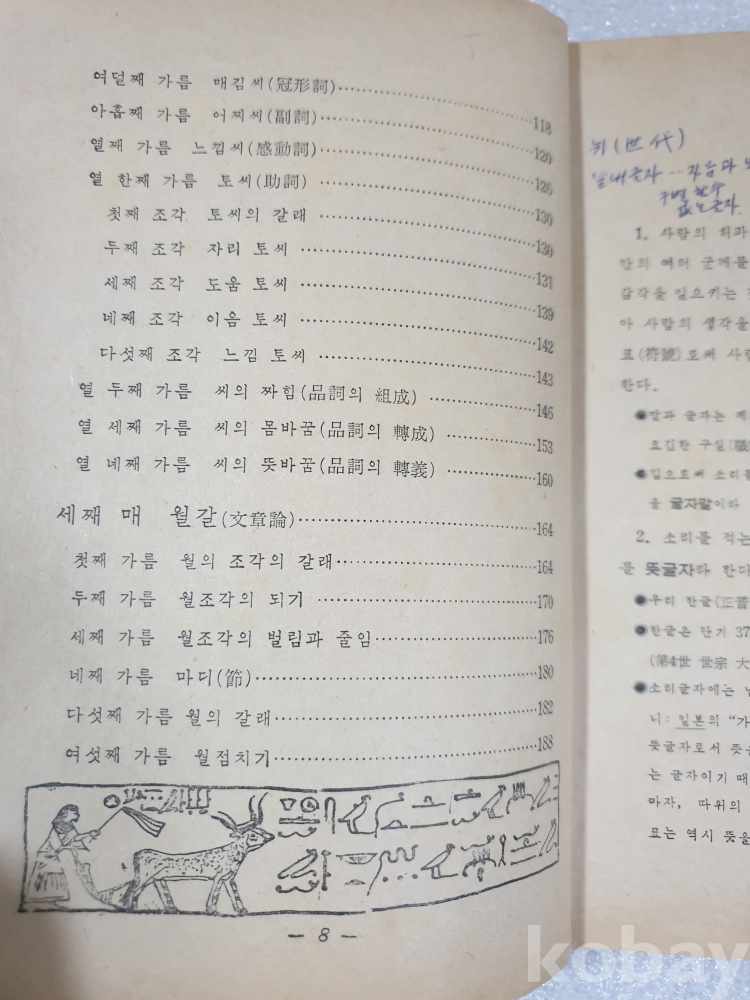 여덟째 가름 매김씨(冠形詞)……118
아홉째 가름 어찌씨(副詞)……120
열째 가름 느낌씨(感動詞)……126
열 한째 가름 토씨(助詞)……130
첫째 조각 토씨의 갈래……130
두째 조각 자리 토씨……131
세째 조각 도움 토씨……139
네째 조각 이음 토씨……142
다섯째 조각 느낌 토씨……143
열 두째 가름 씨의 짜힘(品詞의 組成)……146
열 세째 가름 씨의 몸바꿈(品詞의 轉成)……153
열 네째 가름 씨의 뜻바꿈(品詞의 轉義)……160
세째 매 월갈(文章論)……164
첫째 가름 월의 조각의 갈래……164
두째 가름 월조각의 되기……170
세째 가름 월조각의 벌림과 줄임……176
네째 가름 마디(節)……180
다섯째 가름 월의 갈래……182
여섯째 가름 월점치기……188
— 8 —
뉘(世代)
1. 사람의 허파
안의 여러 군데를
감각을 일으키는
아 사람의 생각을
표(符號)로써 사람
한다.
●말과 글자는 제
요긴한 구실(職
●입으로써 소리를
을 글자말이라
2. 소리를 적는
를 뜻글자라 한다
●우리 한글(正音
●한글은 단기 37
(第4世 世宗 大
●소리글자에는 낱
니: 일본의 "가
뜻글자로서 뜻을
는 글자이기 때
마자, 따위의
표는 역시 뜻을
kobay